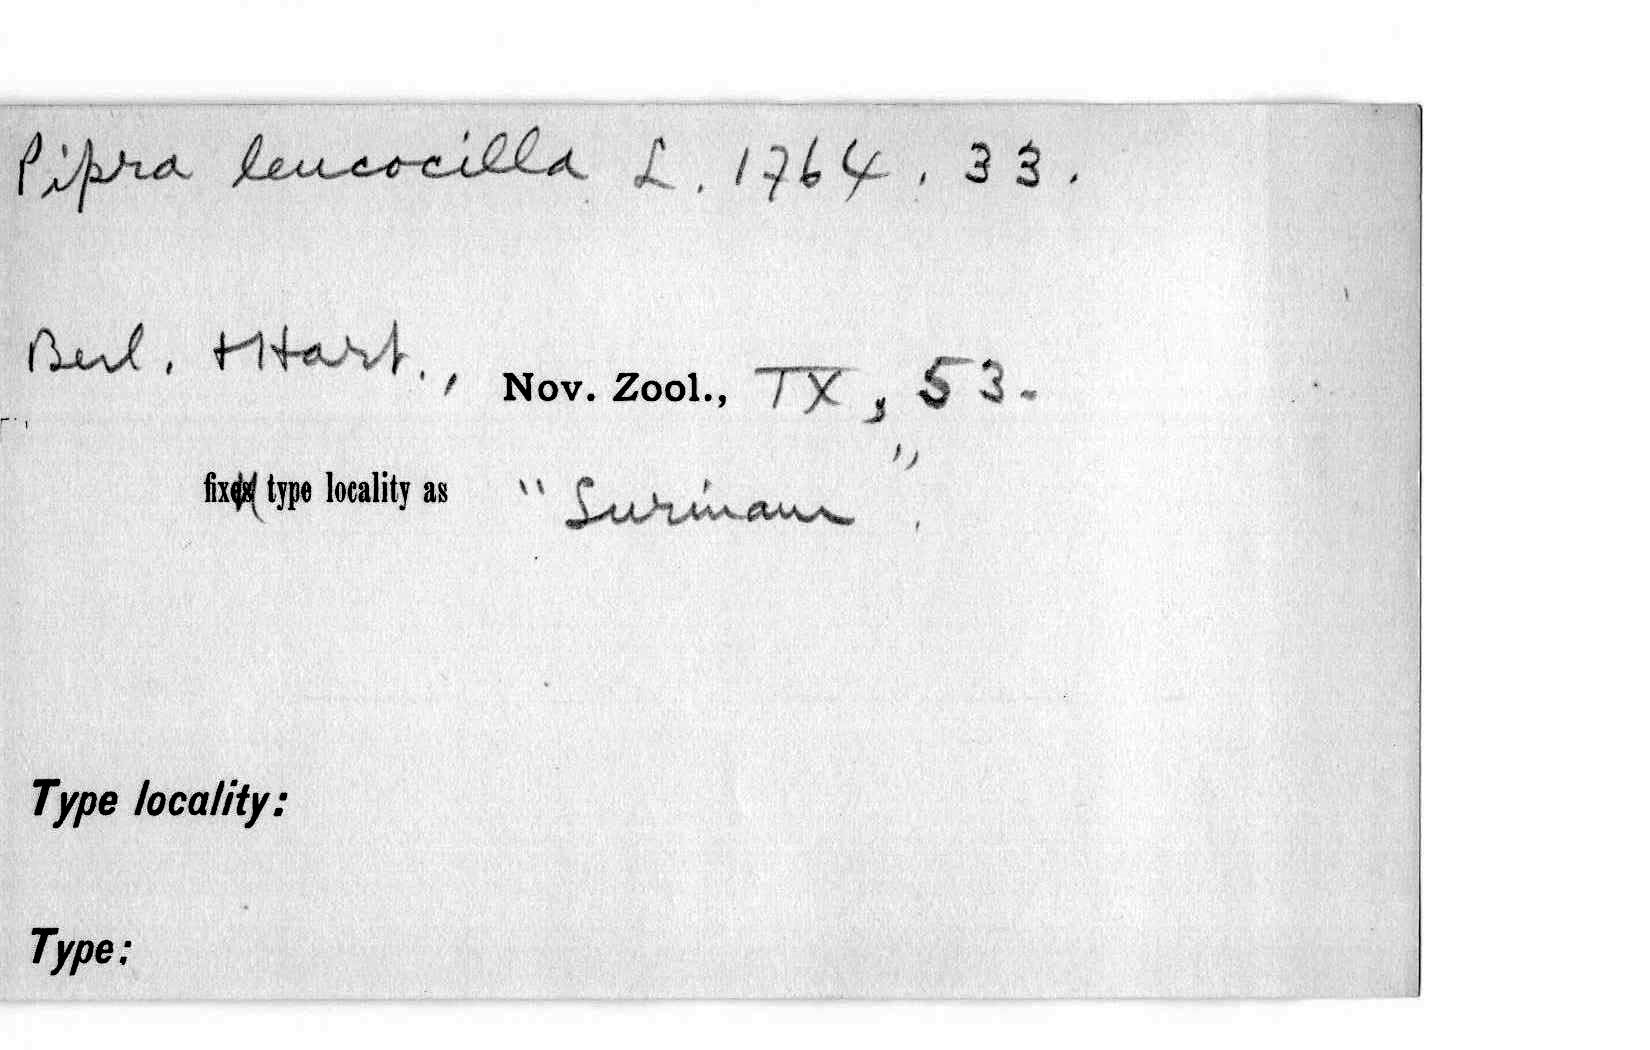 Pipra leucocilla L. 1764. 33.
Berl. + Hart., Nov. Zool., IX, 53.
fix type locality as "Surinam".
Type locality:
Type: